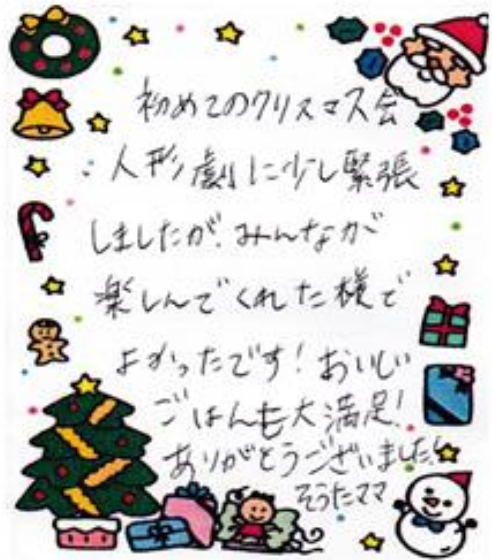 初めてのクリスマス会
人形劇に少し緊張
しましたが、みんなが
楽しんでくれた様で
よかったです！おいしい
ごはんも大満足！
ありがとうございました！
そうたママ